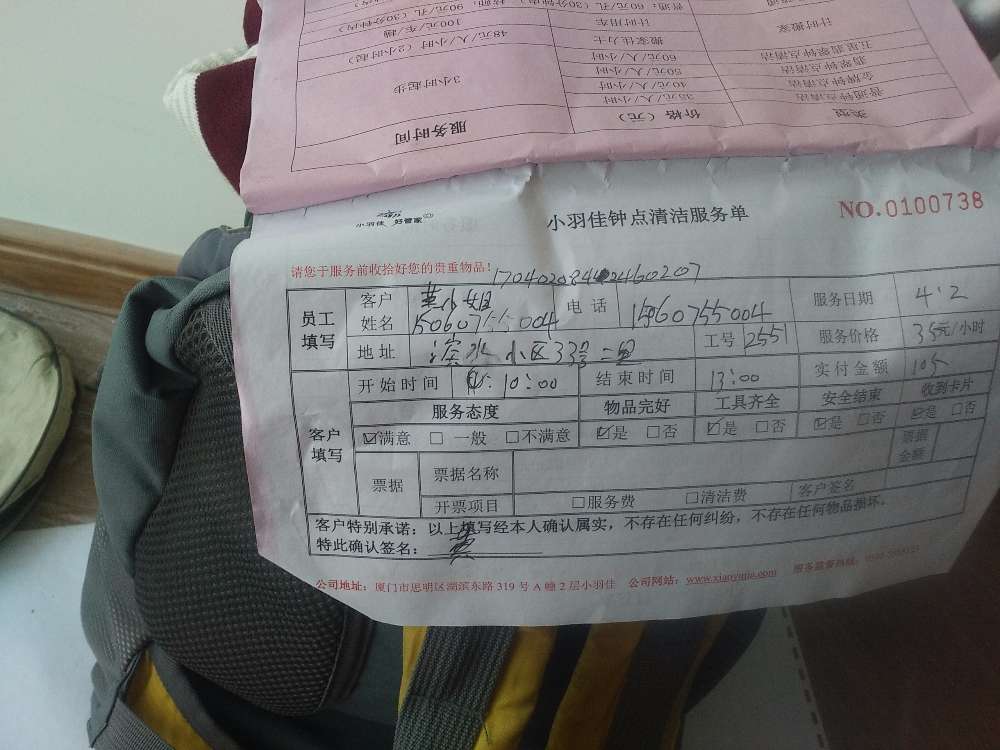 类型 价格（元） 服务时间
普通钟点清洁 35元/人/小时 3小时起步
金牌钟点清洁 40元/人/小时
翡翠钟点清洁 50元/人/小时
五星翡翠钟点清洁 60元/人/小时
搬家住力士 48元/人/小时（2小时起）
计时搬家 计时用车 100元/车/趟
小羽佳 好管家
小羽佳钟点清洁服务单
NO.0100738
请您于服务前收拾好您的贵重物品！
员工填写
客户姓名 小姐 电话 服务日期 4.2
地址 滨水小区33号 工号 2551 服务价格 35元/小时
开始时间 10:00 结束时间 13:00 实付金额 105
客户填写
服务态度 物品完好 工具齐全 安全结束 收到卡片
☑满意 □一般 □不满意 ☑是 □否 ☑是 □否 ☑是 □否 ☑是 □否
票据 票据名称 票据金额
开票项目 □服务费 □清洁费 客户签名
客户特别承诺：以上填写经本人确认属实，不存在任何纠纷，不存在任何物品损坏.
特此确认签名：
公司地址：厦门市思明区湖滨东路 319 号 A 幢 2 层小羽佳 公司网站：www.xiaoyujia.com 服务监督热线：